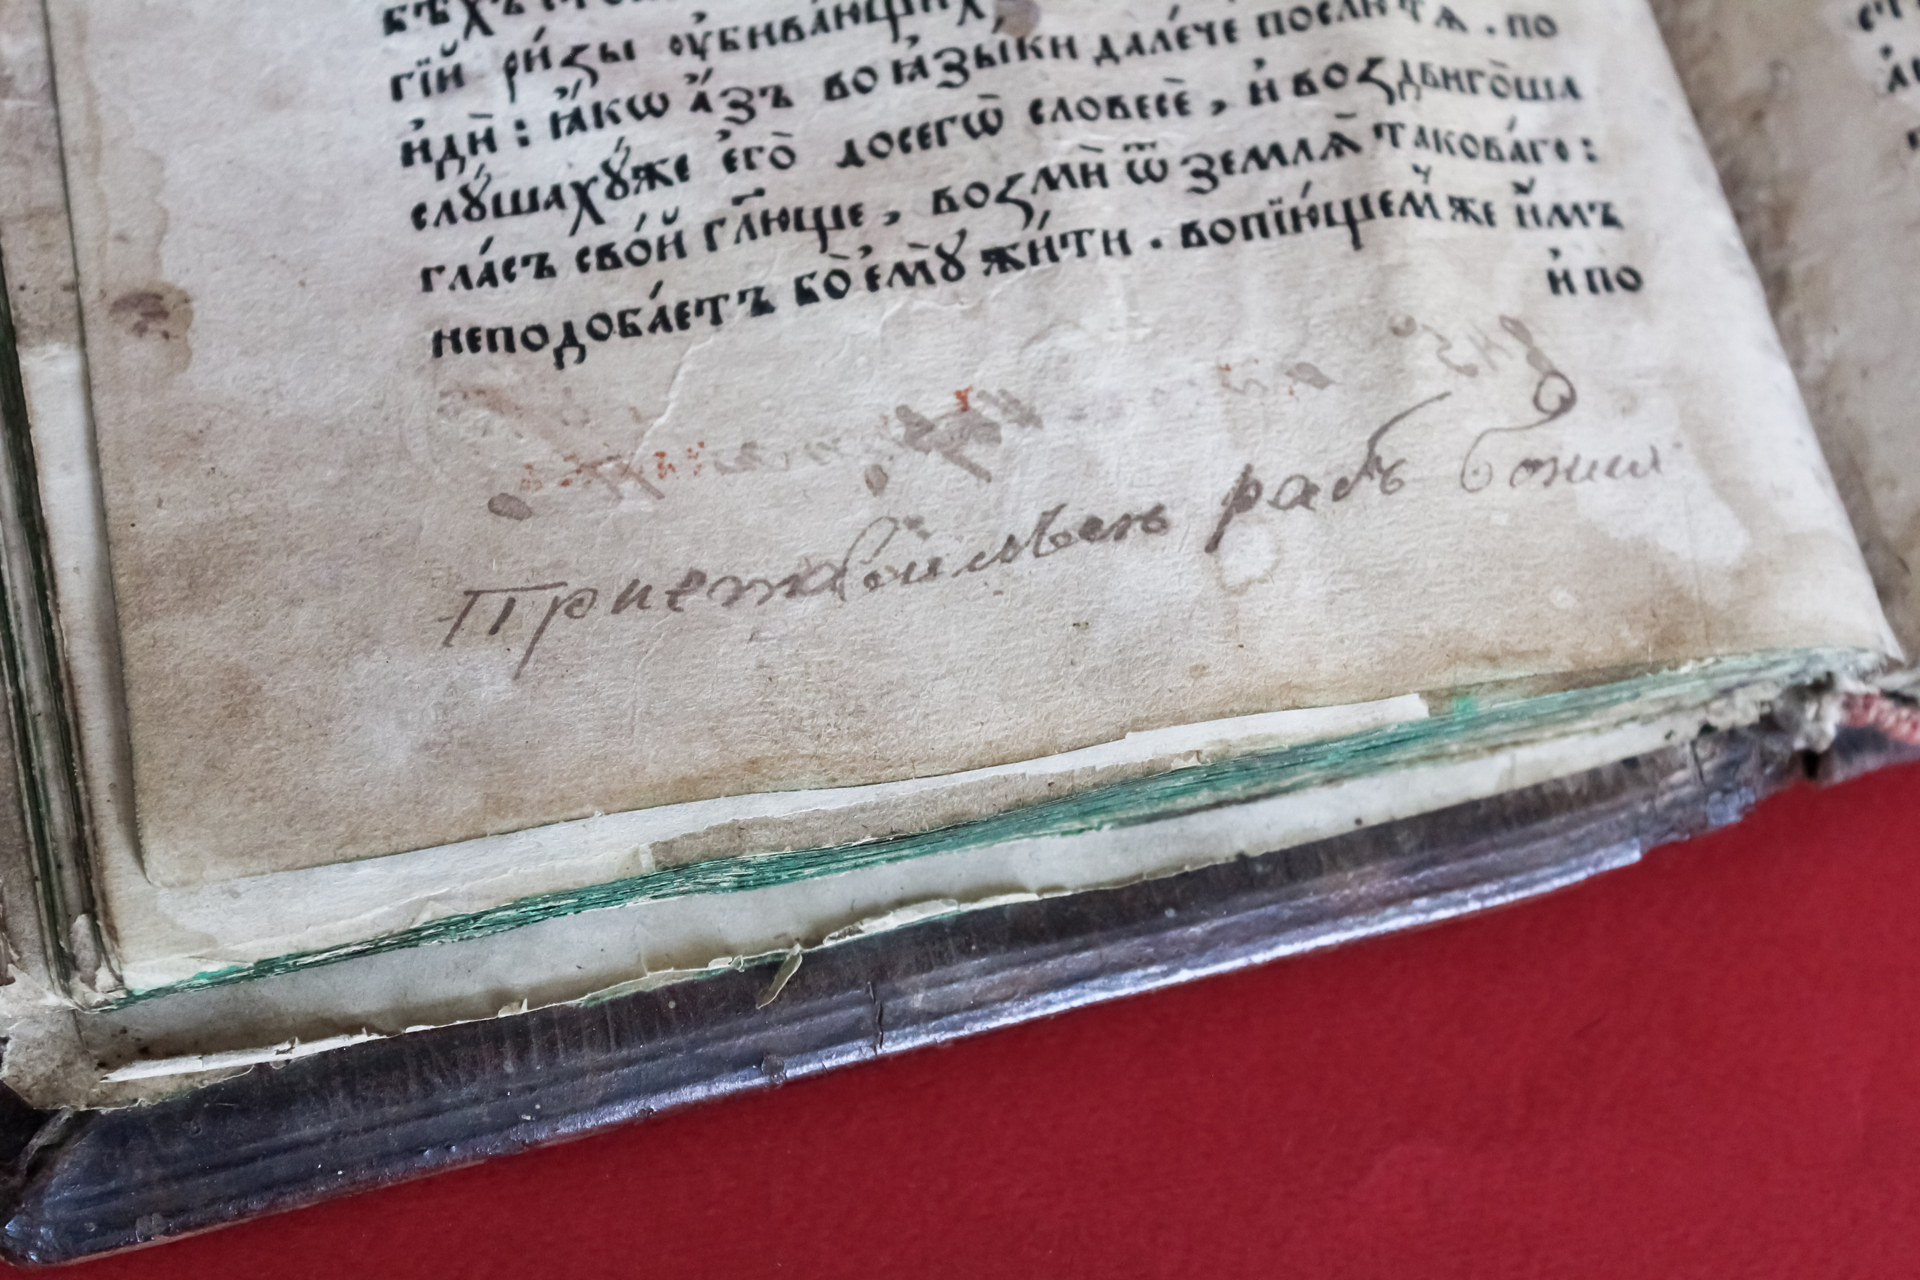 гїѝ ри́зы ᲂу҆бива́ющих
и҆дѝ: ꙗ҆́кѡ а҆́зъ во ꙗ҆зы́ки дале́че послю́ тѧ. по
слꙋ́шахꙋ́же є҆гѡ̀ досегѡ̀ словесѐ, и҆ воздвиго́ша
гла́съ сво́й гл҃юще, возмѝ ѿ землѧ̀ такова́го:
неподоба́етъ бо̀ є҆мꙋ̀ жи́ти. вопїю́щем же и҆̀мъ
и҆ по
рабъ божии